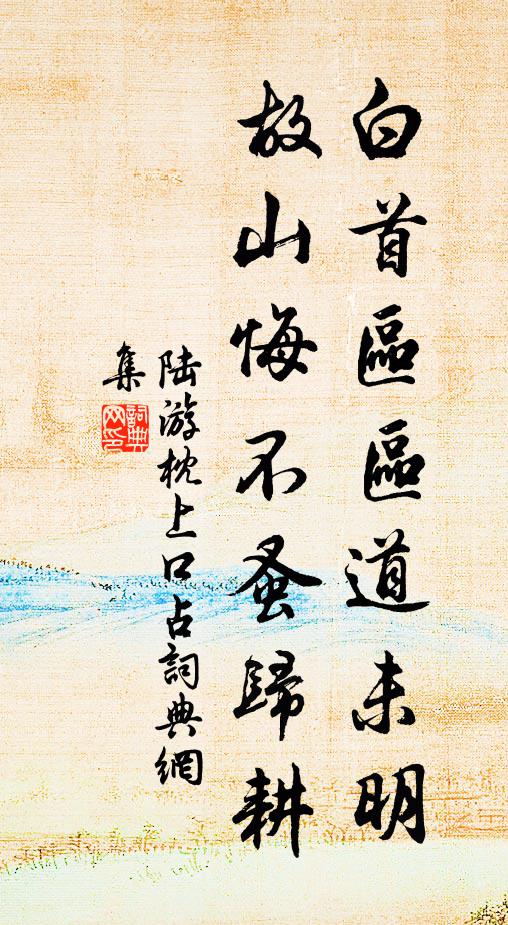 白首區區道未明
故山悔不蚤歸耕
陸游枕上口占詞典網
集
詞典網印